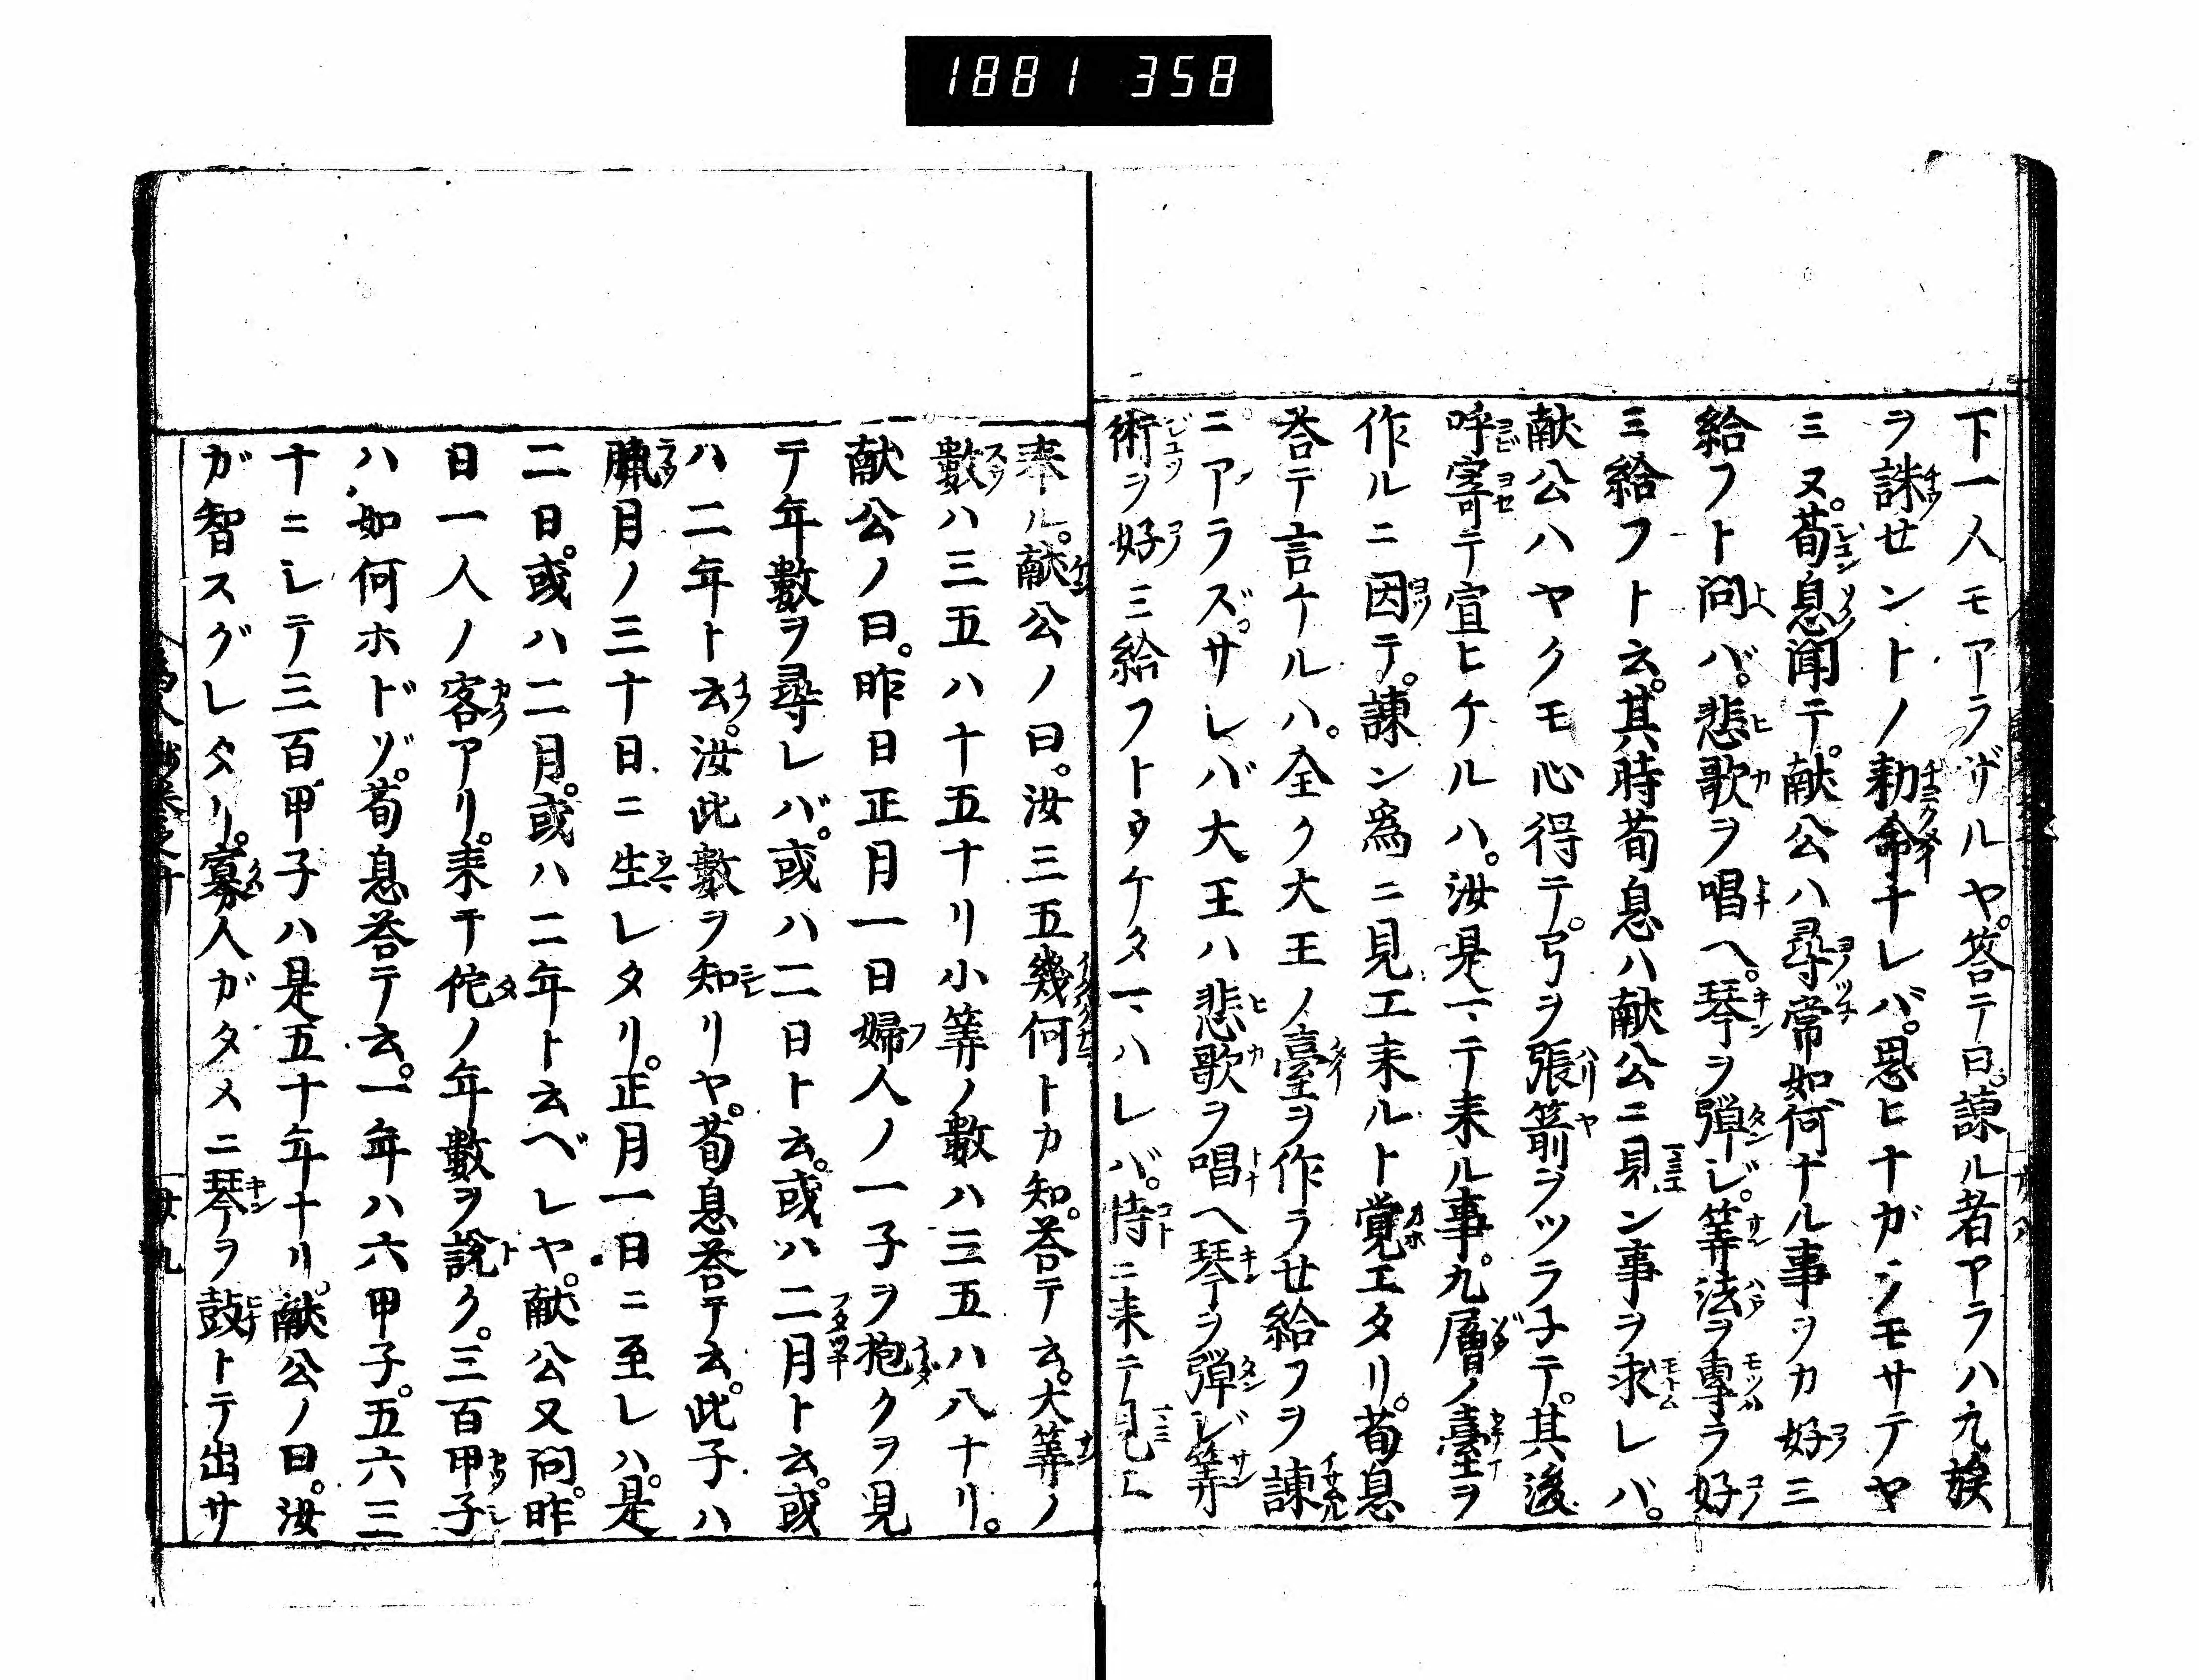 1881 358
下一人モアラザルヤ。答テ曰。諫ル者アラハ九族
ヲ誅せントノ勅命ナレバ。思ヒナガラモサテヤ
ミヌ。荀息聞テ。献公ハ尋常如何ナル事ヲカ好ミ
給フト問バ。悲歌ヲ唱ヘ。琴ヲ弾ジ。筭法ヲ專ラ好
ミ給フト云。其時荀息ハ献公ニ見ン事ヲ求レバ。
献公ハヤクモ心得テ。弓ヲ張箭ヲツラ子テ。其後
呼寄テ宣ヒケルハ。汝是ヘテ来ル事。九層ノ臺ヲ
作ルニ因テ。諫ン為ニ見エ来ルト覚エタリ。荀息
答テ言ケルハ。全ク大王ノ臺ヲ作ラせ給フヲ諫
ニアラズ。サレバ大王ハ悲歌ヲ唱ヘ琴ヲ弾ジ筭
術ヲ好ミ給フトウケタマハレバ。侍ニ来テ見エ
奉ル。献公ノ曰。汝三五幾何トカ知。答テ云。大筭ノ
數ハ三五ハ十五ナリ小筭ノ數ハ三五ハ八ナリ。
献公ノ曰。昨日正月一日婦人ノ一子ヲ抱クヲ見
テ年數ヲ尋レバ。或ハ二日ト云。或ハ二月ト云。或
ハ二年ト云。汝此數ヲ知リヤ。荀息答テ云。此子ハ
臘月ノ三十日ニ生レタリ。正月一日ニ至レハ。是
二日。或ハ二月。或ハ二年ト云ベレヤ。献公又問。昨
日一人ノ客アリ。来テ佗ノ年數ヲ説ク。三百甲子
ハ如何ホドゾ。荀息答テ云。一年ハ六甲子。五六三
十ニレテ三百甲子ハ是五十年ナリ。献公ノ曰。汝
ガ智スグレタリ。寡人ガタメニ琴ヲ鼓トテ出サ